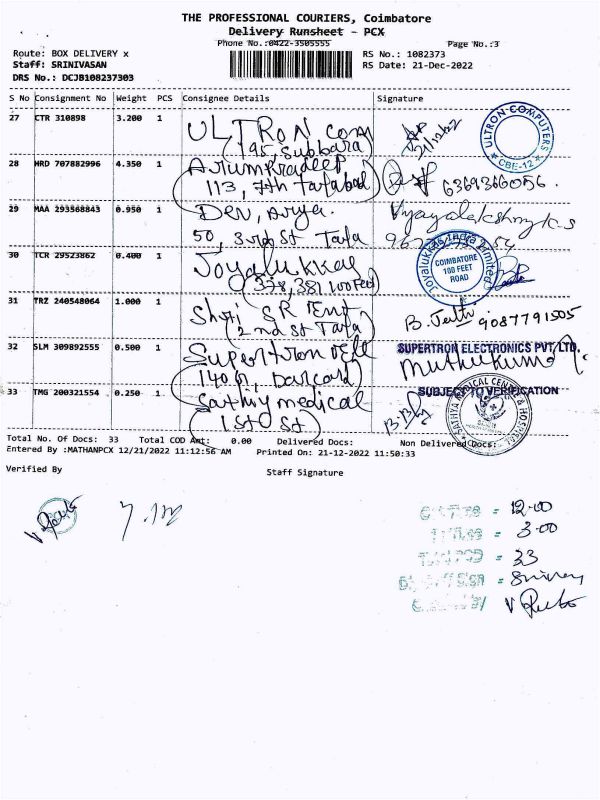 THE PROFESSIONAL COURIERS, Coimbatore
Delivery Runsheet - PCX
Phone No.:0422-3505555 Page No.:3
Route: BOX DELIVERY x RS No.: 1082373
Staff: SRINIVASAN RS Date: 21-Dec-2022
DRS No.: DCJB108237303
S No Consignment No Weight PCS Consignee Details Signature
27 CTR 310898 3.200 1 ULTRON Com
(195, Subbara)
21/12/22
ULTRON COMPUTERS
CBE-12
28 MRD 707882996 4.350 1 Arumpradeep,
113, 7th Tatabad) 6369366056.
29 MAA 293568843 0.950 1 Dev, Arya.
50, 3rd St Tata
Vijayalakshmy K S
30 TCR 29523862 0.400 1 Joyalukkas
(378, 381 100 Feet)
Joyalukkas India Limited
COIMBATORE
100 FEET
ROAD
31 TRZ 240548064 1.000 1 Shri SR Ent
(2nd St Tata) 9087791505
32 SLM 309892555 0.500 1 Supertron
SUPERTRON ELECTRONICS PVT LTD.
Muthukumar
SUBJECT TO VERIFICATION
33 TMG 200321554 0.250 1 medical
(1st St)
SATHYA MEDICAL CENTRE & HOSPITAL
Total No. Of Docs: 33 Total COD Amt: 0.00 Delivered Docs: Non Delivered Docs:
Entered By :MATHANPCX 12/21/2022 11:12:56 AM Printed On: 21-12-2022 11:50:33
Verified By Staff Signature
= 12.00
= 3.00
= 33